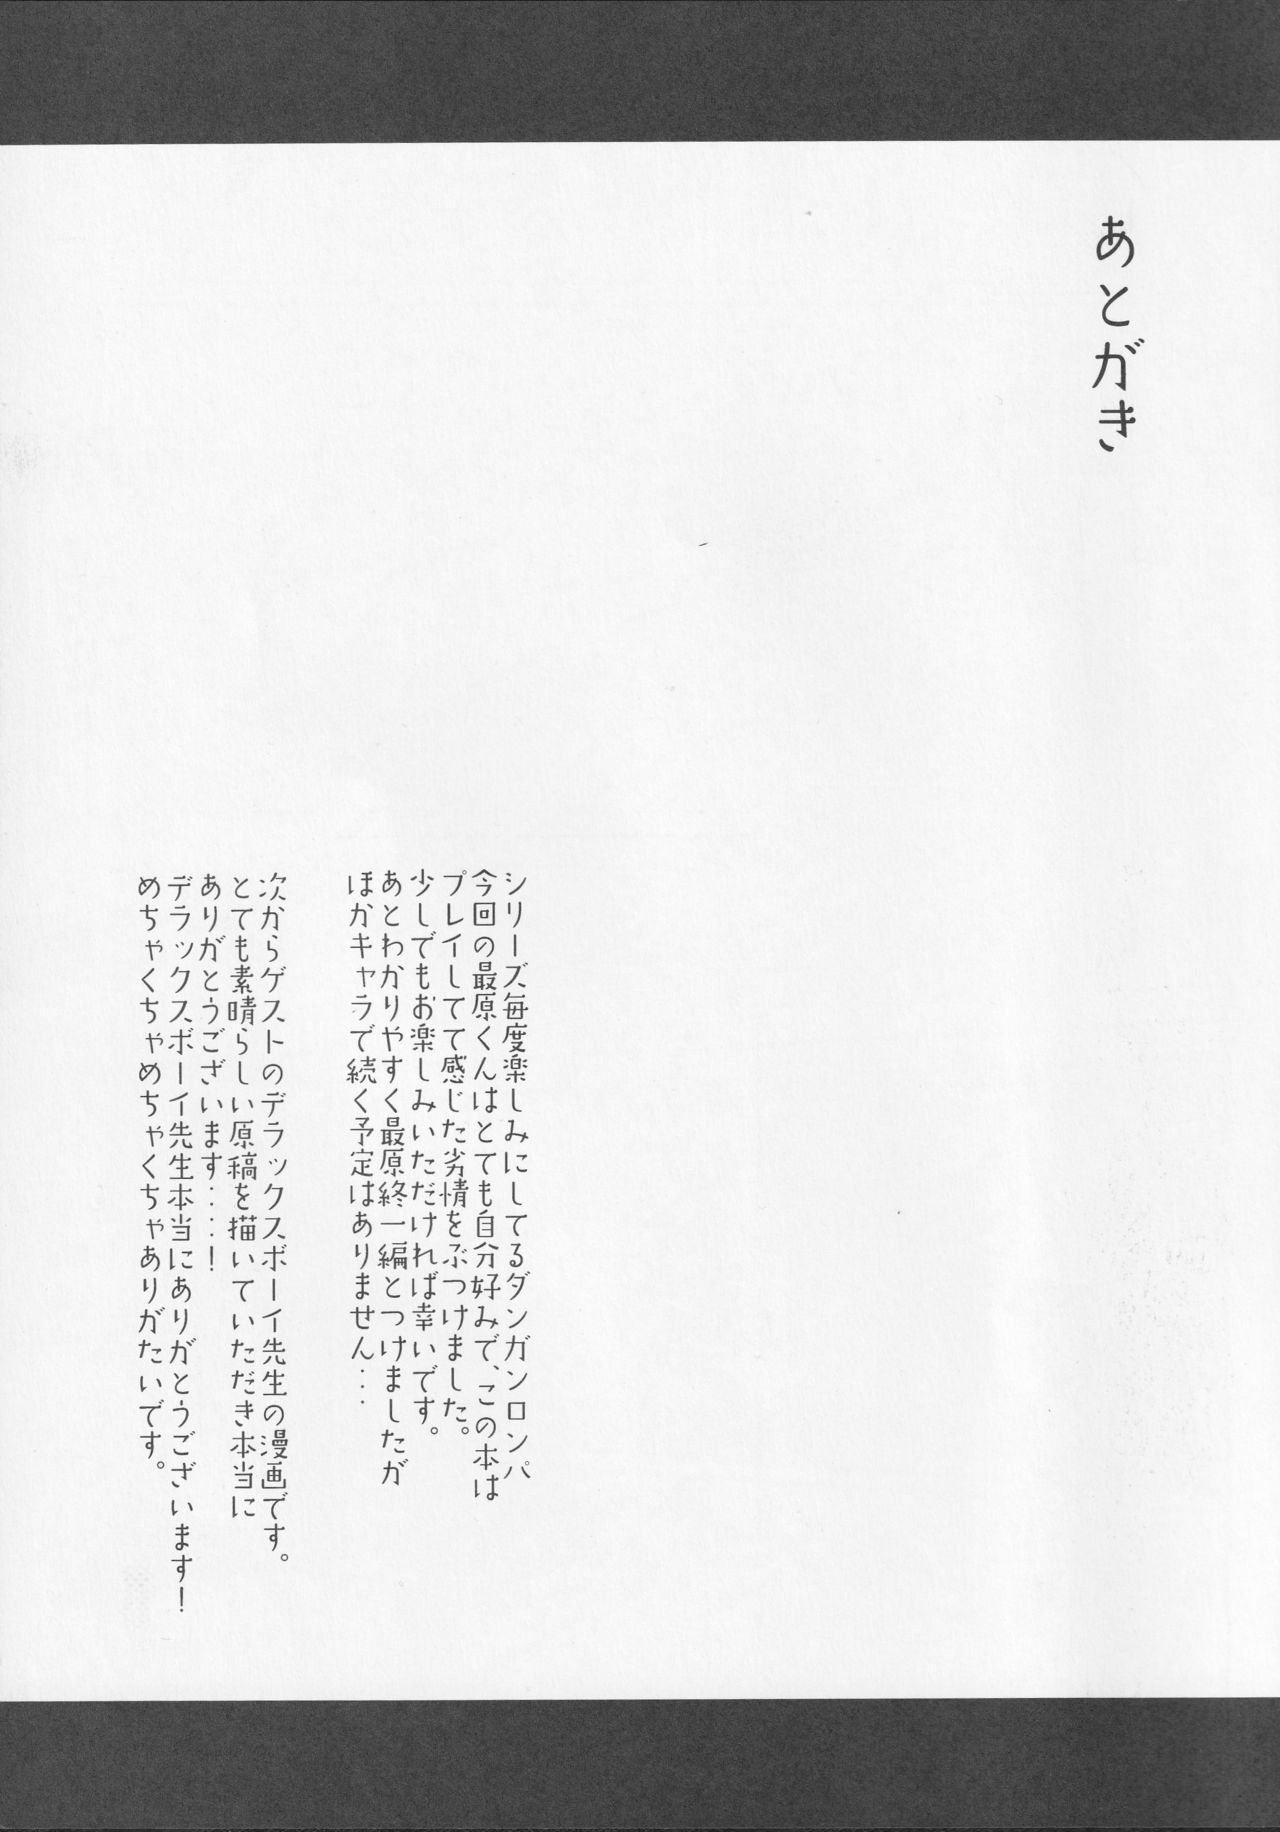 あとがき
シリーズ毎度楽しみにしてるダンガンロンパ
今回の最原くんはとても自分好みで、この本は
プレイしてて感じた劣情をぶつけました。
少しでもお楽しみいただければ幸いです。
あとわかりやすく最原終一編とつけましたが
ほかキャラで続く予定はありません…
次からゲストのデラックスボーイ先生の漫画です。
とても素晴らしい原稿を描いていただき本当に
ありがとうございます……!
デラックスボーイ先生本当にありがとうございます!
めちゃくちゃめちゃくちゃありがたいです。